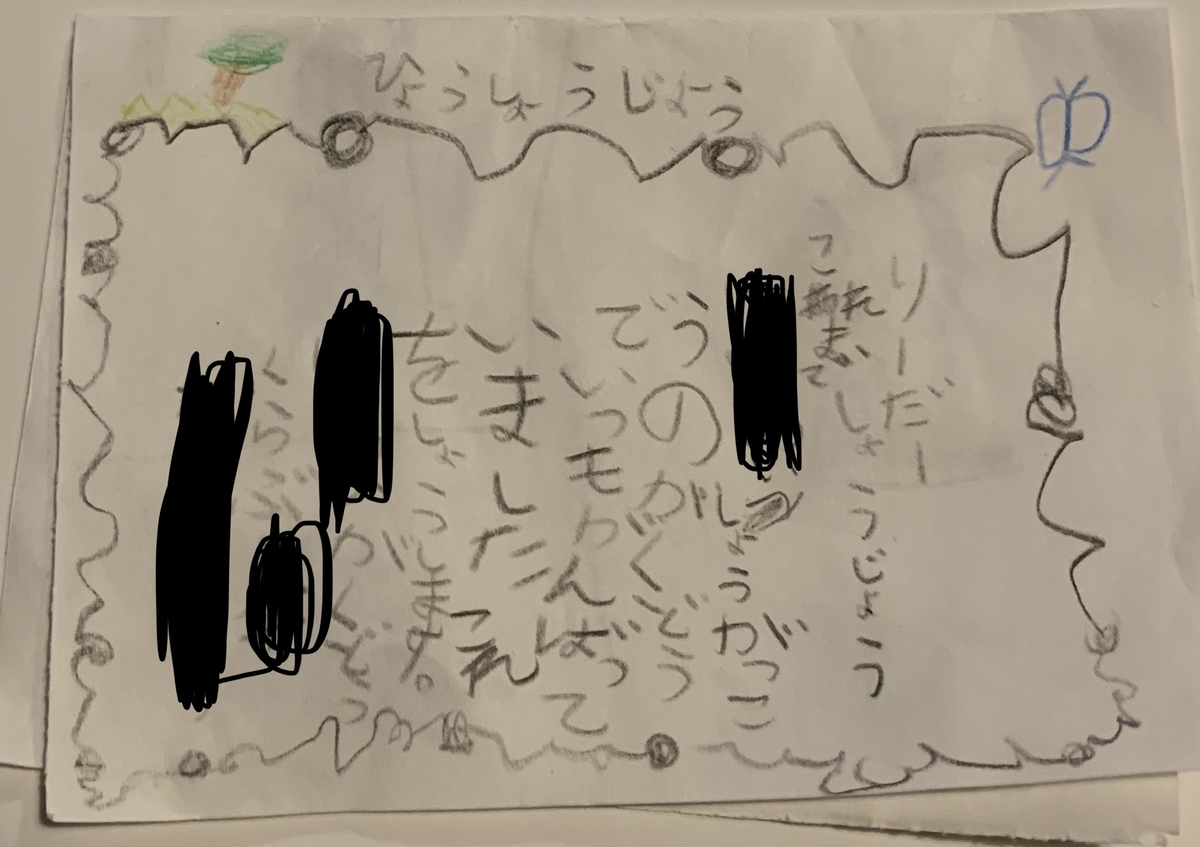 ひょうしょうじょう
りーだー
しょうじょう
これまで
しょうがっこ
うのがくどう
でいっモがんばって
いました
これ
をしょうします。
がくどう
くらぶ